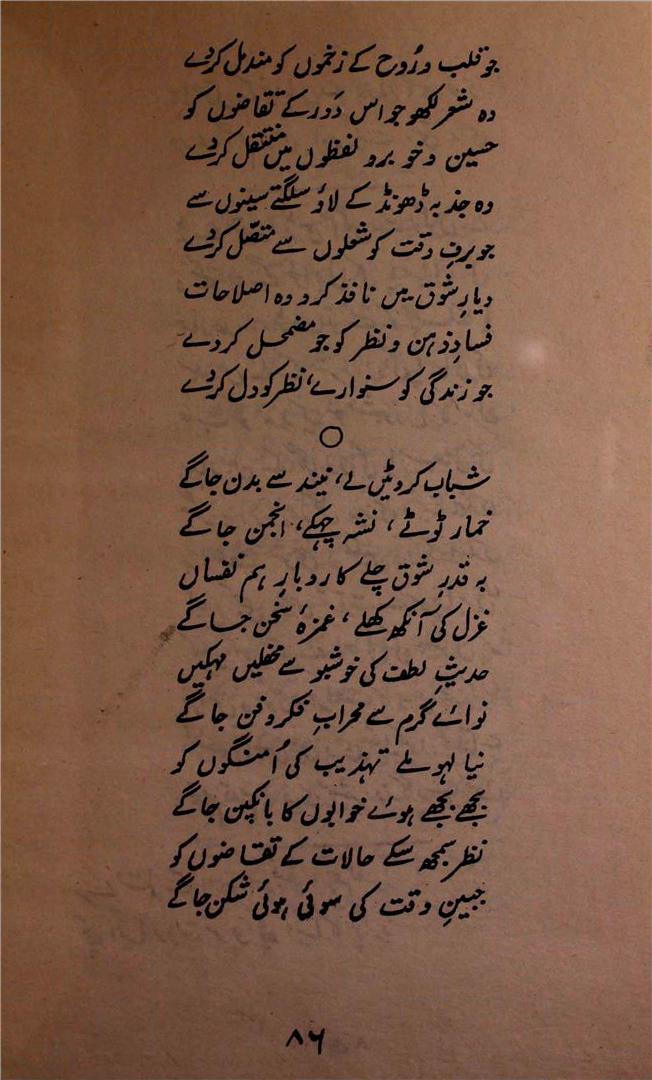 جو قلب و رُوح کے زخموں کو مندمل کردے
وہ شعر لکھو جو اس دَور کے تقاضوں کو
حسین و خوبرو لفظوں میں منتقل کردے
وہ جذبہ ڈھونڈ کے لاؤ سلگتے سینوں سے
جو برفِ وقت کو شعلوں سے متصّل کردے
دیارِ شوق میں نافذ کرو وہ اصلاحات
فسادِ ذہن و نظر کو جو مضمحل کردے
جو زندگی کو سنوارے، نظر کو دل کردے
○
شباب کروٹیں لے، نیند سے بدن جاگے
خمار ٹوٹے، نشہ چہکے، انجمن جاگے
بہ قدرِ شوق چلے کاروبارِ ہم نفساں
غزل کی آنکھ کھلے، غمزۂ سخن جاگے
حدیثِ لطف کی خوشبو سے محفلیں مہکیں
نوائے گرم سے محرابِ فکر و فن جاگے
نیا لہو ملے تہذیب کی اُمنگوں کو
بجھے بجھے ہوئے خوابوں کا بانکپن جاگے
نظر سمجھ سکے حالات کے تقاضوں کو
جبینِ وقت کی سوئی ہوئی شکن جاگے
۸۶